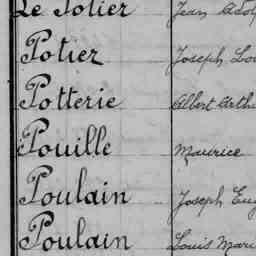 Le Potier Jean Adol
Potier Joseph Lou
Potterie Albert Arthu
Pouille Maurice
Poulain Joseph Eug
Poulain Louis Mari